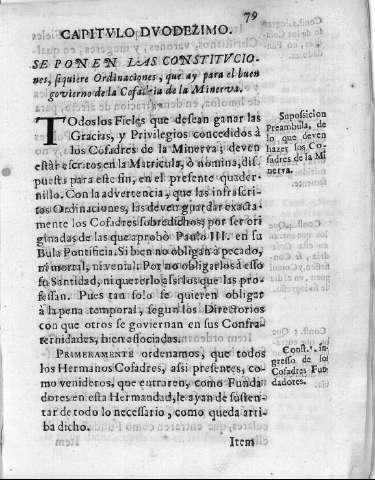 79
CAPITVLO DVODEZIMO.
SE PONEN LAS CONSTITVCIO-
nes, siquiere Ordinaciones, que ay para el buen
govierno de la Cofadria de la Minerva.
TOdos los Fieles que desean ganar las
Gracias, y Privilegios concedidos à
los Cofadres de la Minerva; deven
estàr escritos en la Matricula, ò nomina, dis-
puesta para este fin, en el presente quader-
nillo. Con la advertencia, que las infrascri-
tas Ordinaciones, las deven guardar exacta-
mente los Cofadres sobredichos; por ser ori-
ginadas de las que aprobò Paulo III. en su
Bula Pontificia. Si bien no obligan à pecado,
ni mortal, ni venial: Por no obligarlos à esso
su Santidad, ni quererlo assi los que las pro-
fessan. Pues tan solo se quieren obligar
à la pena temporal, segun los Directorios
con que otros se goviernan en sus Confra-
ternidades, bien associadas.
PRIMERAMENTE ordenamos, que todos
los Hermanos Cofadres, assi presentes, co-
mo venideros, que entraren, como Funda
dores en esta Hermandad, le ayan de susten-
tar de todo lo necessario, como queda arri-
ba dicho.
Item
Suposicion
Preambula, de
lo que deven
hazer los Co-
fadres de la Mi
nerva.
Const. 1. in-
gresso de los
Cofadres Fun
dadores.